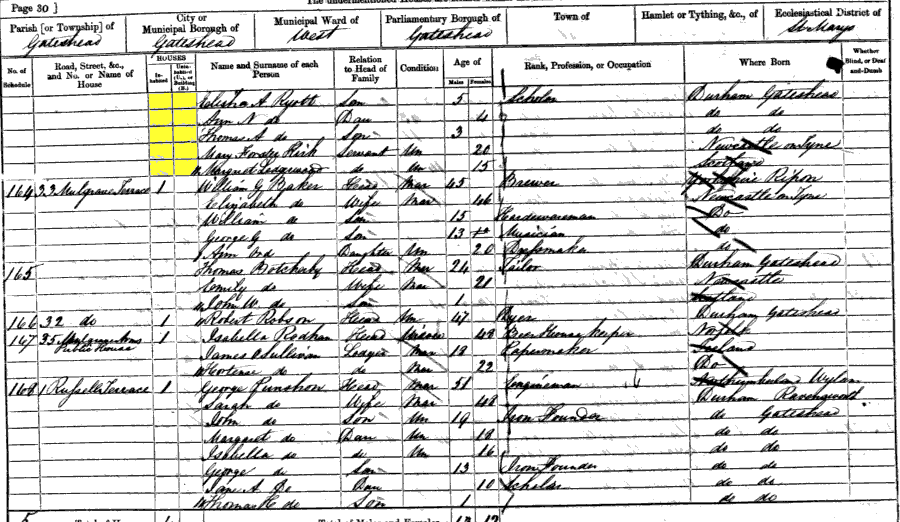 Page 30 ]
Parish [or Township] of
Gateshead
City or
Municipal Borough of
Gateshead
Municipal Ward of
West
Parliamentary Borough of
Gateshead
Town of
Hamlet or Tything, &c., of
Ecclesiastical District of
St Marys
No. of Schedule
Road, Street, &c., and No. or Name of House
HOUSES
In-habited
Name and Surname of each Person
Relation to Head of Family
Condition
Age of
Males
Females
Rank, Profession, or Occupation
Where Born
Whether Blind, or Deaf-and-Dumb
Elisha A Ryott Son 5 Scholar Durham Gateshead
Ann N do Dau 4 do do
Thomas A do Son 3 do do
Mary Kirk Servant Un 20 Newcastle on Tyne
Margret do Un 15 Scotland
164 33 Mulgrave Terrace 1 William G Baker Head Mar 45 Brewer Ripon
Elizabeth do Wife Mar 46 Newcastle on Tyne
William do Son 15 Do
George G do Son 13 Musician do
Ann do Daughter Un 20 Dressmaker do
165 Thomas Head Mar 24 Tailor Durham Gateshead
Emily do Wife Mar 21 Newcastle
John W. do Son 1
166 32 do 1 Robert Robson Head Un 47 Durham Gateshead
167 35 Public House 1 Isabella Rodham Head 48 Beer House keeper
James OSullivan Lodger Mar 18 Papermaker Ireland
Hortense do do Mar 22 Do
168 1 Russells Terrace 1 George Punshon Head Mar 51 Engineman Northumberland Wylam
Sarah do Wife Mar 48 Durham Ravensworth
John do Son Un 19 Iron Founder do Gateshead
Margaret do Dau Un 18 do do
Isabella do do Un 16 do do
George do Son 13 Iron Founder do do
Jane A Do Dau 10 Scholar do do
Thomas H do Son 1 do do